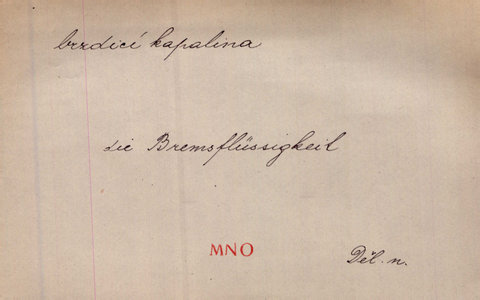 brzdicí kapalina
die Bremsflüssigkeit
MNO
Děl. n.